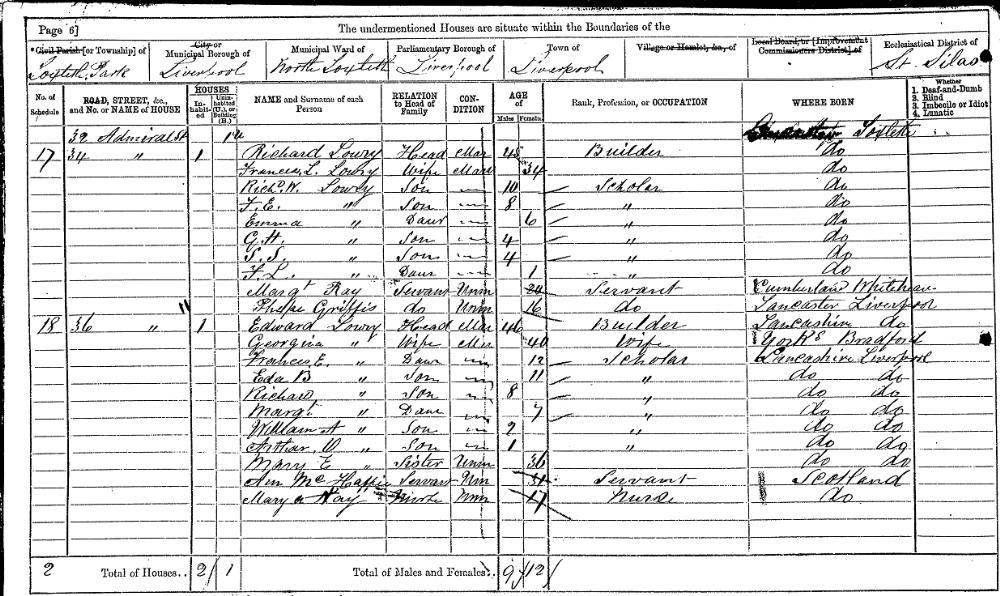 Page 6] The undermentioned Houses are situate within the Boundaries of the
Civil Parish [or Township] of City or Municipal Borough of Municipal Ward of Parliamentary Borough of Town of Village or Hamlet, &c., of Local Board, or [Improvement Commissioners District] of Ecclesiastical District of
Toxteth Park Liverpool North Toxteth Liverpool Liverpool St. Silas
No. of Schedule ROAD, STREET, &c., and No. or NAME of HOUSE HOUSES Inhabited Uninhabited (U.), or Building (B.) NAME and Surname of each Person RELATION to Head of Family CONDITION AGE of Males Females Rank, Profession, or OCCUPATION WHERE BORN Whether 1. Deaf-and-Dumb 2. Blind 3. Imbecile or Idiot 4. Lunatic
32 Admiral St 1 u Toxteth
17 34 " 1 Richard Lowry Head Mar 45 Builder do
Frances L. Lowry Wife Mar 34 do
Richd. W. Lowry Son 10 Scholar do
F. E. " Son 8 " do
Emma " Daur 6 " do
G. H. " Son 4 " do
S. S. " Son 4 " do
F. L. " Daur 1 " do
Margt Ray Servant Unm 20 Servant Cumberland
Griffis do Unm 16 do Lancaster Liverpool
18 36 " 1 Edward Lowry Head Mar 46 Builder Lancashire do
Georgina " Wife Mar 40 Wife Yorks Bradford
Frances E. " Daur 12 Scholar Lancashire Liverpool
Eda B " Son 11 " do do
Richard " Son 8 " do do
Margt " Daur 7 " do do
William A " Son 2 " do do
Arthur O " Son 1 " do do
Mary E " Sister Unm 36 do do
Ann Mc Servant Unm 31 Servant Scotland
Mary a Hay Nurse Unm 17 Nurse do
2 Total of Houses.. 2 / 1 Total of Males and Females.. 9 / 12 /